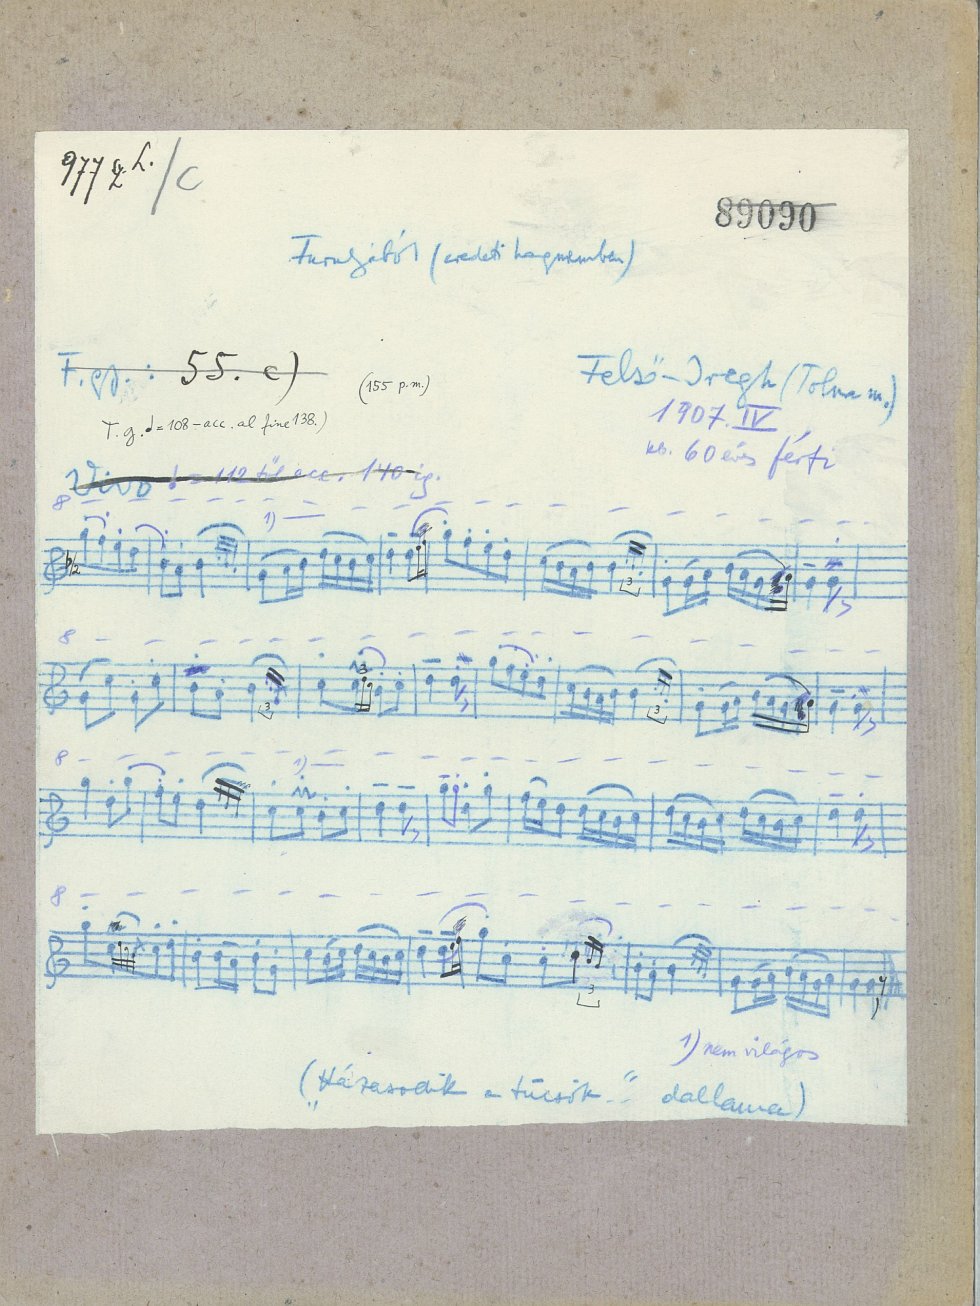 977 /c
89090
Furulyából (eredeti hangnemben)
F. gr.: 55. c)
(155 p.m.)
Felső-Iregh (Tolna m.)
T.g. = 108 - acc. al fine 138.)
1907. IV
kb. 60 éves férfi
Vivo = 112 től acc. 140 ig.
8
1)
3
8
3
3
3
8
1)
8
3
1) nem világos
("Házasodik a tücsök –" dallama)